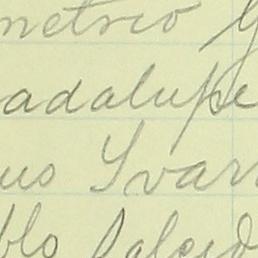 metrio G
adalupe
us Yvar
blo Salcid